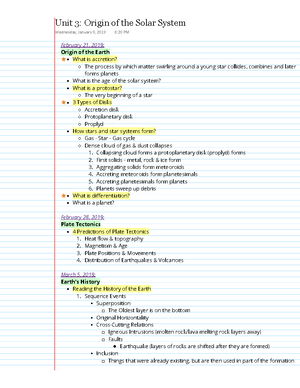 Unit 3: Origin of the Solar System
Wednesday, January 9, 2019 6:39 PM
February 21, 2019:
Origin of the Earth
What is accretion?
The process by which matter swirling around a young star collides, combines and later
forms planets
What is the age of the solar system?
What is a protostar?
The very beginning of a star
3 Types of Disks
Accretion disk
Protoplanetary disk
Proplyd
How stars and star systems form?
Gas - Star - Gas cycle
Dense cloud of gas & dust collapses
1. Collapsing cloud forms a protoplanetary disk (proplyd) forms
2. First solids - metal, rock & ice form
3. Aggregating solids form meteoroids
4. Accreting meteoroids form planetesimals
5. Accreting planetesimals form planets
6. Planets sweep up debris
What is differentiation?
What is a planet?
February 28, 2019:
Plate Tectonics
4 Predictions of Plate Tectonics
1. Heat flow & topography
2. Magnetism & Age
3. Plate Positions & Movements
4. Distribution of Earthquakes & Volcanoes
March 5, 2019:
Earth's History
Reading the History of the Earth
1. Sequence Events
Superposition
The Oldest layer is on the bottom
Original Horizontality
Cross Cutting Relations
Igneous Intrusions (molten rock/lava melting rock layers away)
Faults
Earthquake (layers of rocks are shifted after they are formed)
Inclusion
Things that were already existing, but are then used in part of the formation